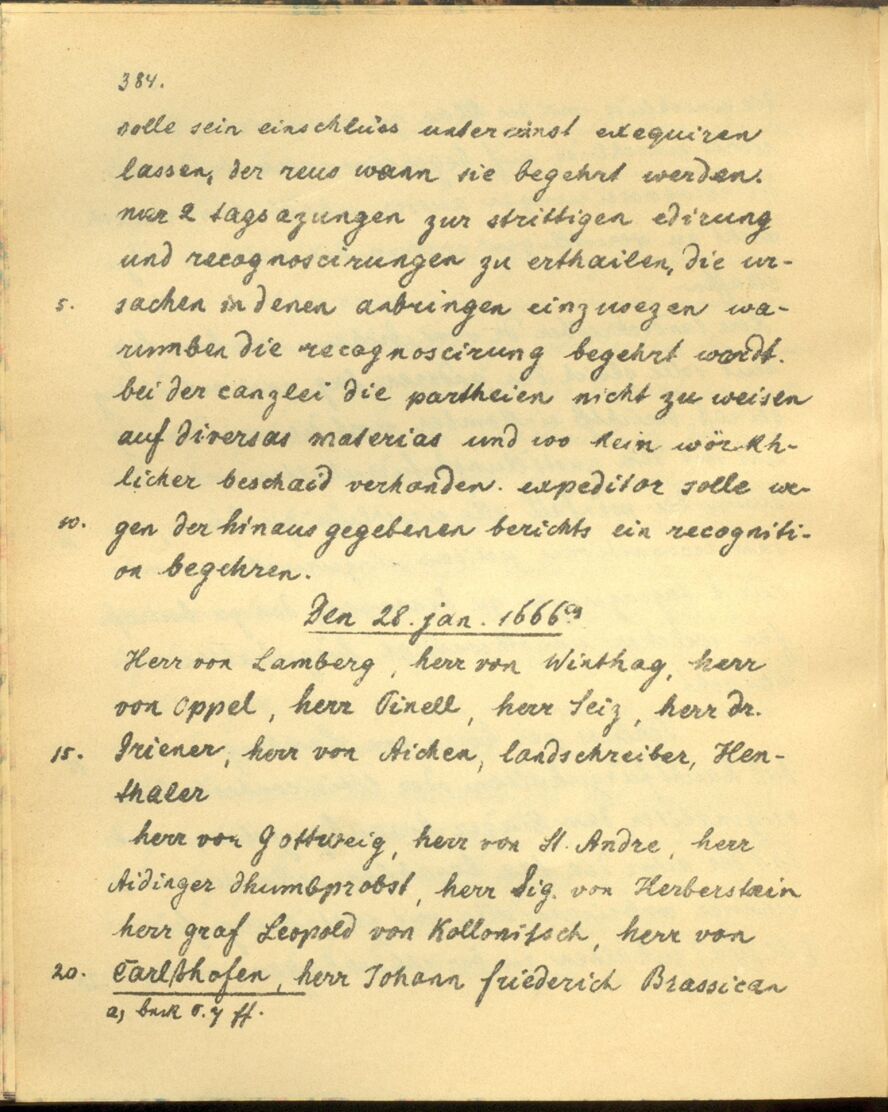 384.
solle sein einschluss unter einst exequiren
lassen, der reus wann sie begehrt werden.
nur 2 tagsazungen zur strittigen edirung
und recognoscirungen zu erthailen, die ur-
5. sachen in denen anbringen einzusezen wa-
rumben die recognoscirung begehrt wardt.
bei der canzlei die partheien nicht zu weisen
auf diversas materias und wo kein würkh-
licher beschaid verhanden. expeditor solle we-
10. gen der hinaus gegebenen berichts ein recogniti-
on begehren.
Den 28. jan. 1666 a)
Herr von Lamberg, herr von Winthag, herr
von Oppel, herr Pinell, herr Seiz, herr dr.
15. Griener, herr von Aichen, landschreiber, Hen-
thaler
herr von Gottweig, herr von St. Andre, herr
Aidinger dhumbprobst, herr Sig. von Herberstein
herr graf Leopold von Kollonitsch, herr von
20. Carlshofen, herr Johann friederich Brassican
a) ff.